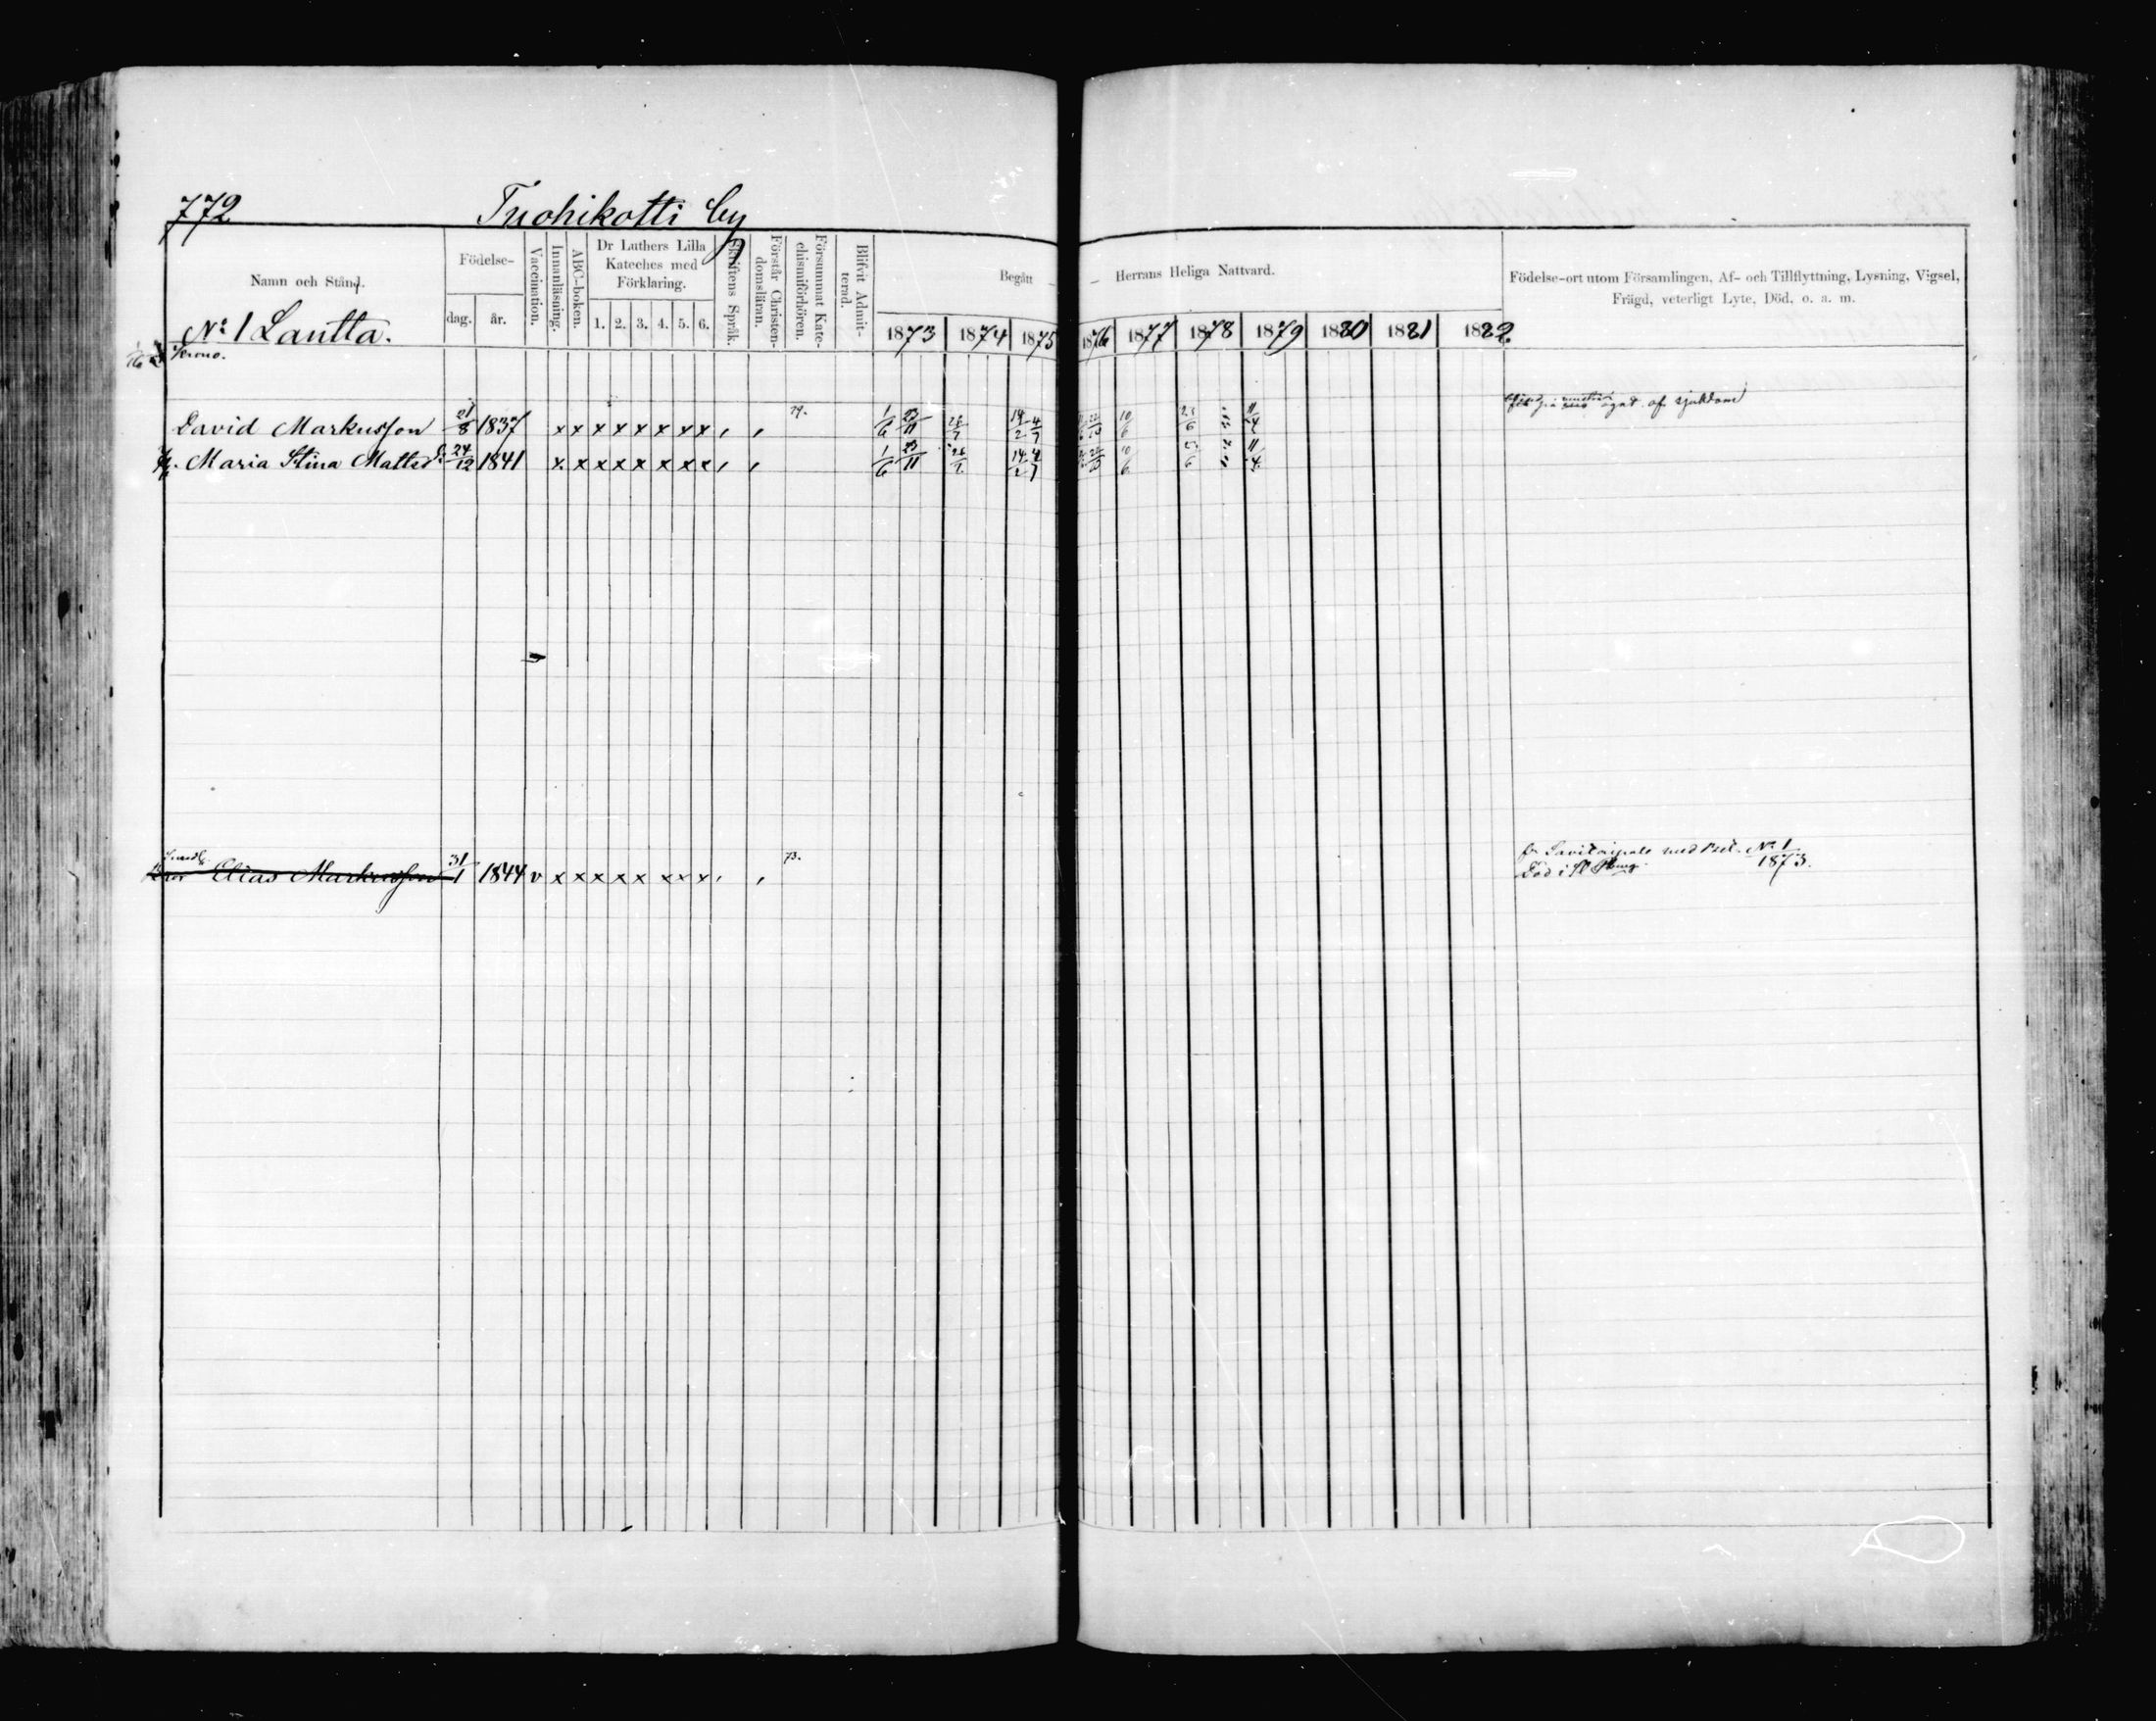 772 Tuohikotti by
Namn och Stånd.
Födelse-
dag. år.
Vaccination.
Innanläsning.
ABC-boken.
Dr Luthers Lilla
Kateches med
Förklaring.
1. 2. 3. 4. 5. 6.
Skriftens Språk.
Förstår Christen-
domsläran.
Försummat Kate-
chismiförhören.
Blifvit Admit-
terad.
Begått — — Herrans Heliga Nattvard.
1873 1874 1875 1876 1877 1878 1879 1880 1881 1882
Födelse-ort utom Församlingen, Af- och Tillflyttning, Lysning, Vigsel,
Frägd, veterligt Lyte, Död, o. a. m.
No 1 Lautta.
Krono.
ögat af sjukdom
David Markusson 21/8 1837 x x x x x x x x x , ,
1/6 23/11 14/2 4/7 10/6 11/4
Maria Stina Mattsd. 24/12 1841 x x x x x x x x x , ,
1/6 23/11 14/2 4/7 10/6 11/4
Elias Markusson 31/1 1844 v x x x x x x x x x , , 73.
fr Savitaipale med bet. No 1/1873.
Död i